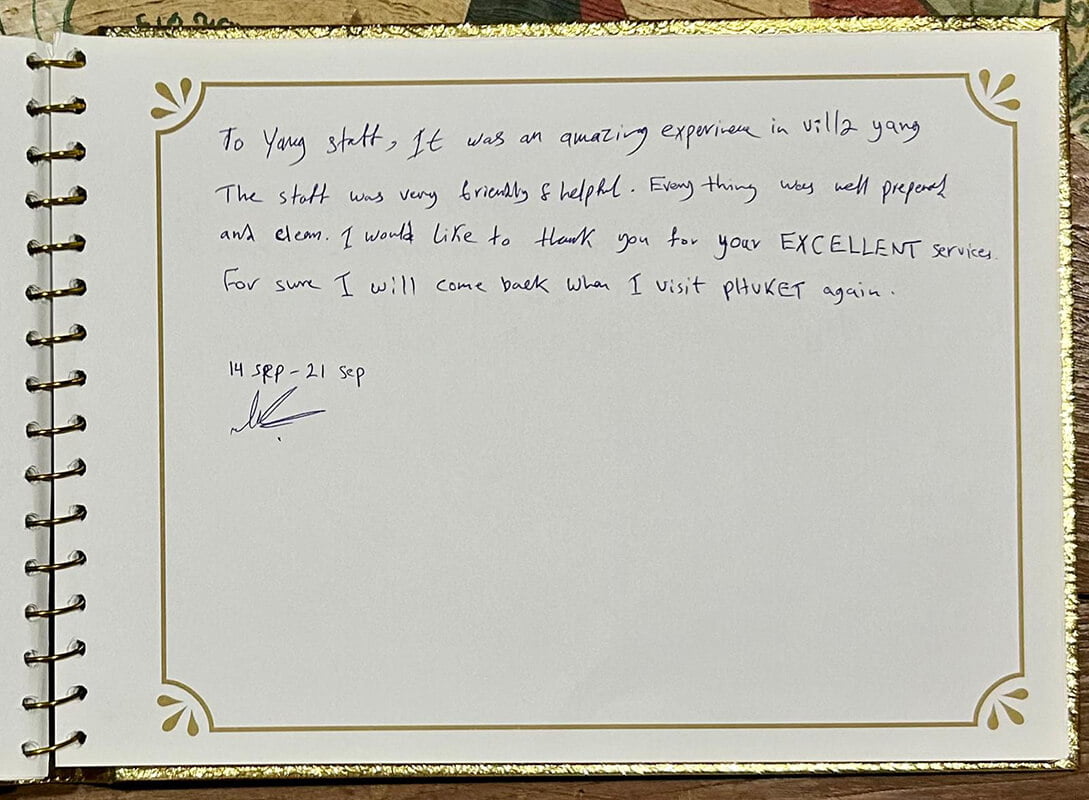 To Yang staff, It was an amazing experience in villa yang
The staff was very friendly & helpful. Every thing was well prepared
and clean. I would like to thank you for your EXCELLENT services.
For sure I will come back when I visit PHUKET again.
14 sep - 21 sep